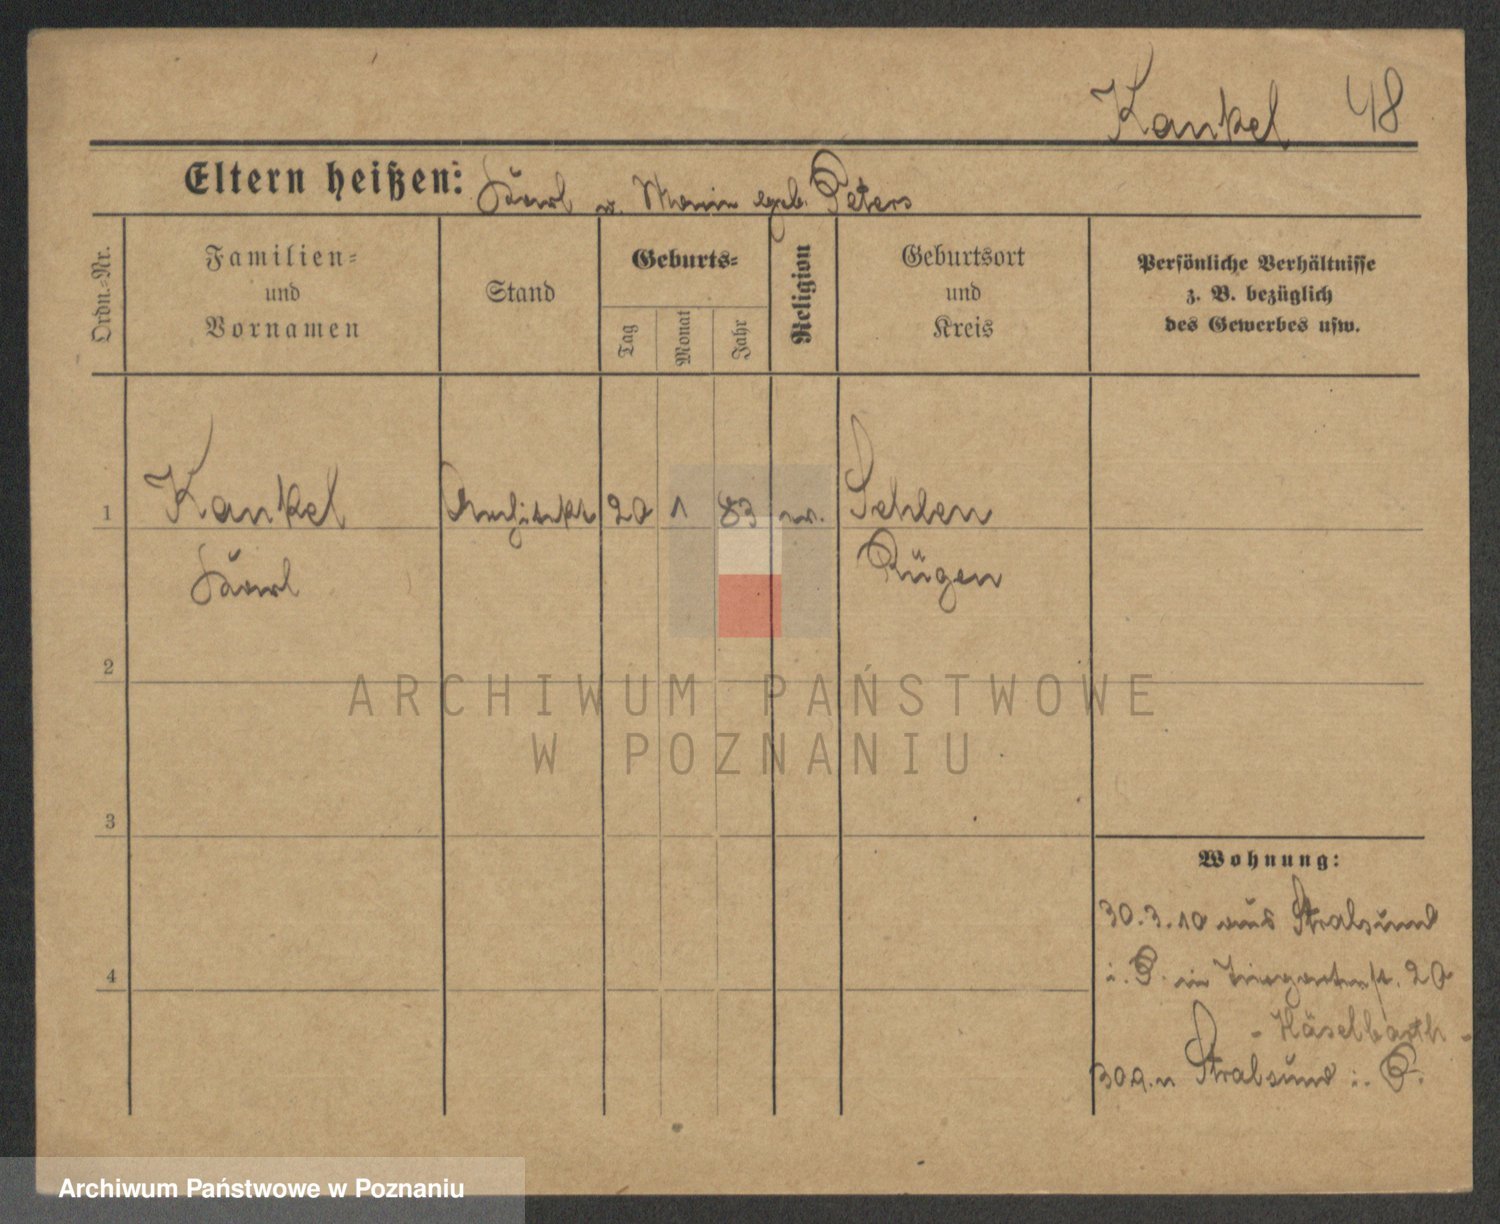 Kankel 48
Eltern heißen: Karl u. Marie geb. Peters
Ordn.-Nr.
Familien-
und
Vornamen
Stand
Geburts-
Tag
Monat
Jahr
Religion
Geburtsort
und
Kreis
Persönliche Verhältnisse
z. B. bezüglich
des Gewerbes usw.
1 Kankel Architekt 20 1 83 ev. Sehlen
Karl Rügen
2
3
4
Wohnung:
30.3.10 aus Stralsund
i. P. in Tiergartenst. 20
- Häselbarth -
30.9. n Stralsund i. P.
ARCHIWUM PAŃSTWOWE
W POZNANIU
Archiwum Państwowe w Poznaniu